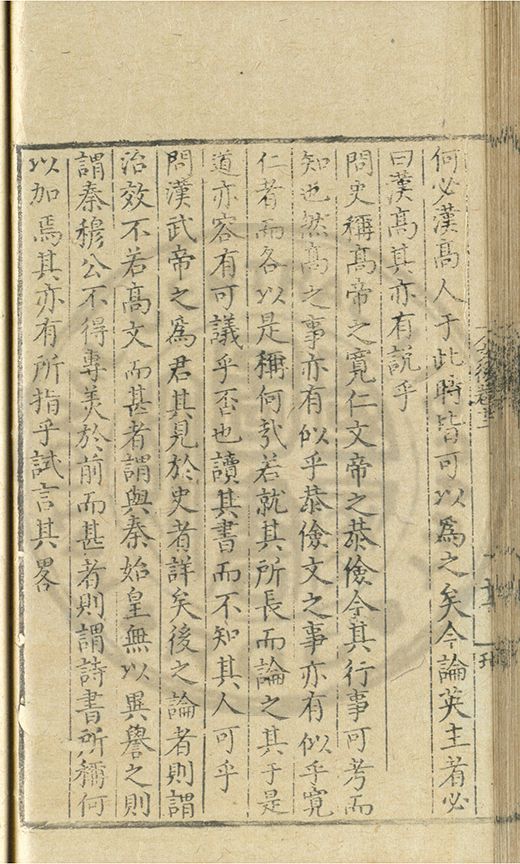 何必漢高人于此時皆可以為之矣今論英主者必
曰漢高其亦有説乎
問史稱高帝之寬仁文帝之恭儉今其行事可考而
知也然高之事亦有似乎恭儉文之事亦有似乎寬
仁者而各以是稱何㢤若就其所長而論之其于是
道亦容有可議乎否也讀其書而不知其人可乎
問漢武帝之為君其見於史者詳矣後之論者則謂
治效不若高文而甚者謂與秦始皇無以異譽之則
謂秦穆公不得專美於前而甚者則謂詩書所稱何
以加焉其亦有所指乎試言其畧